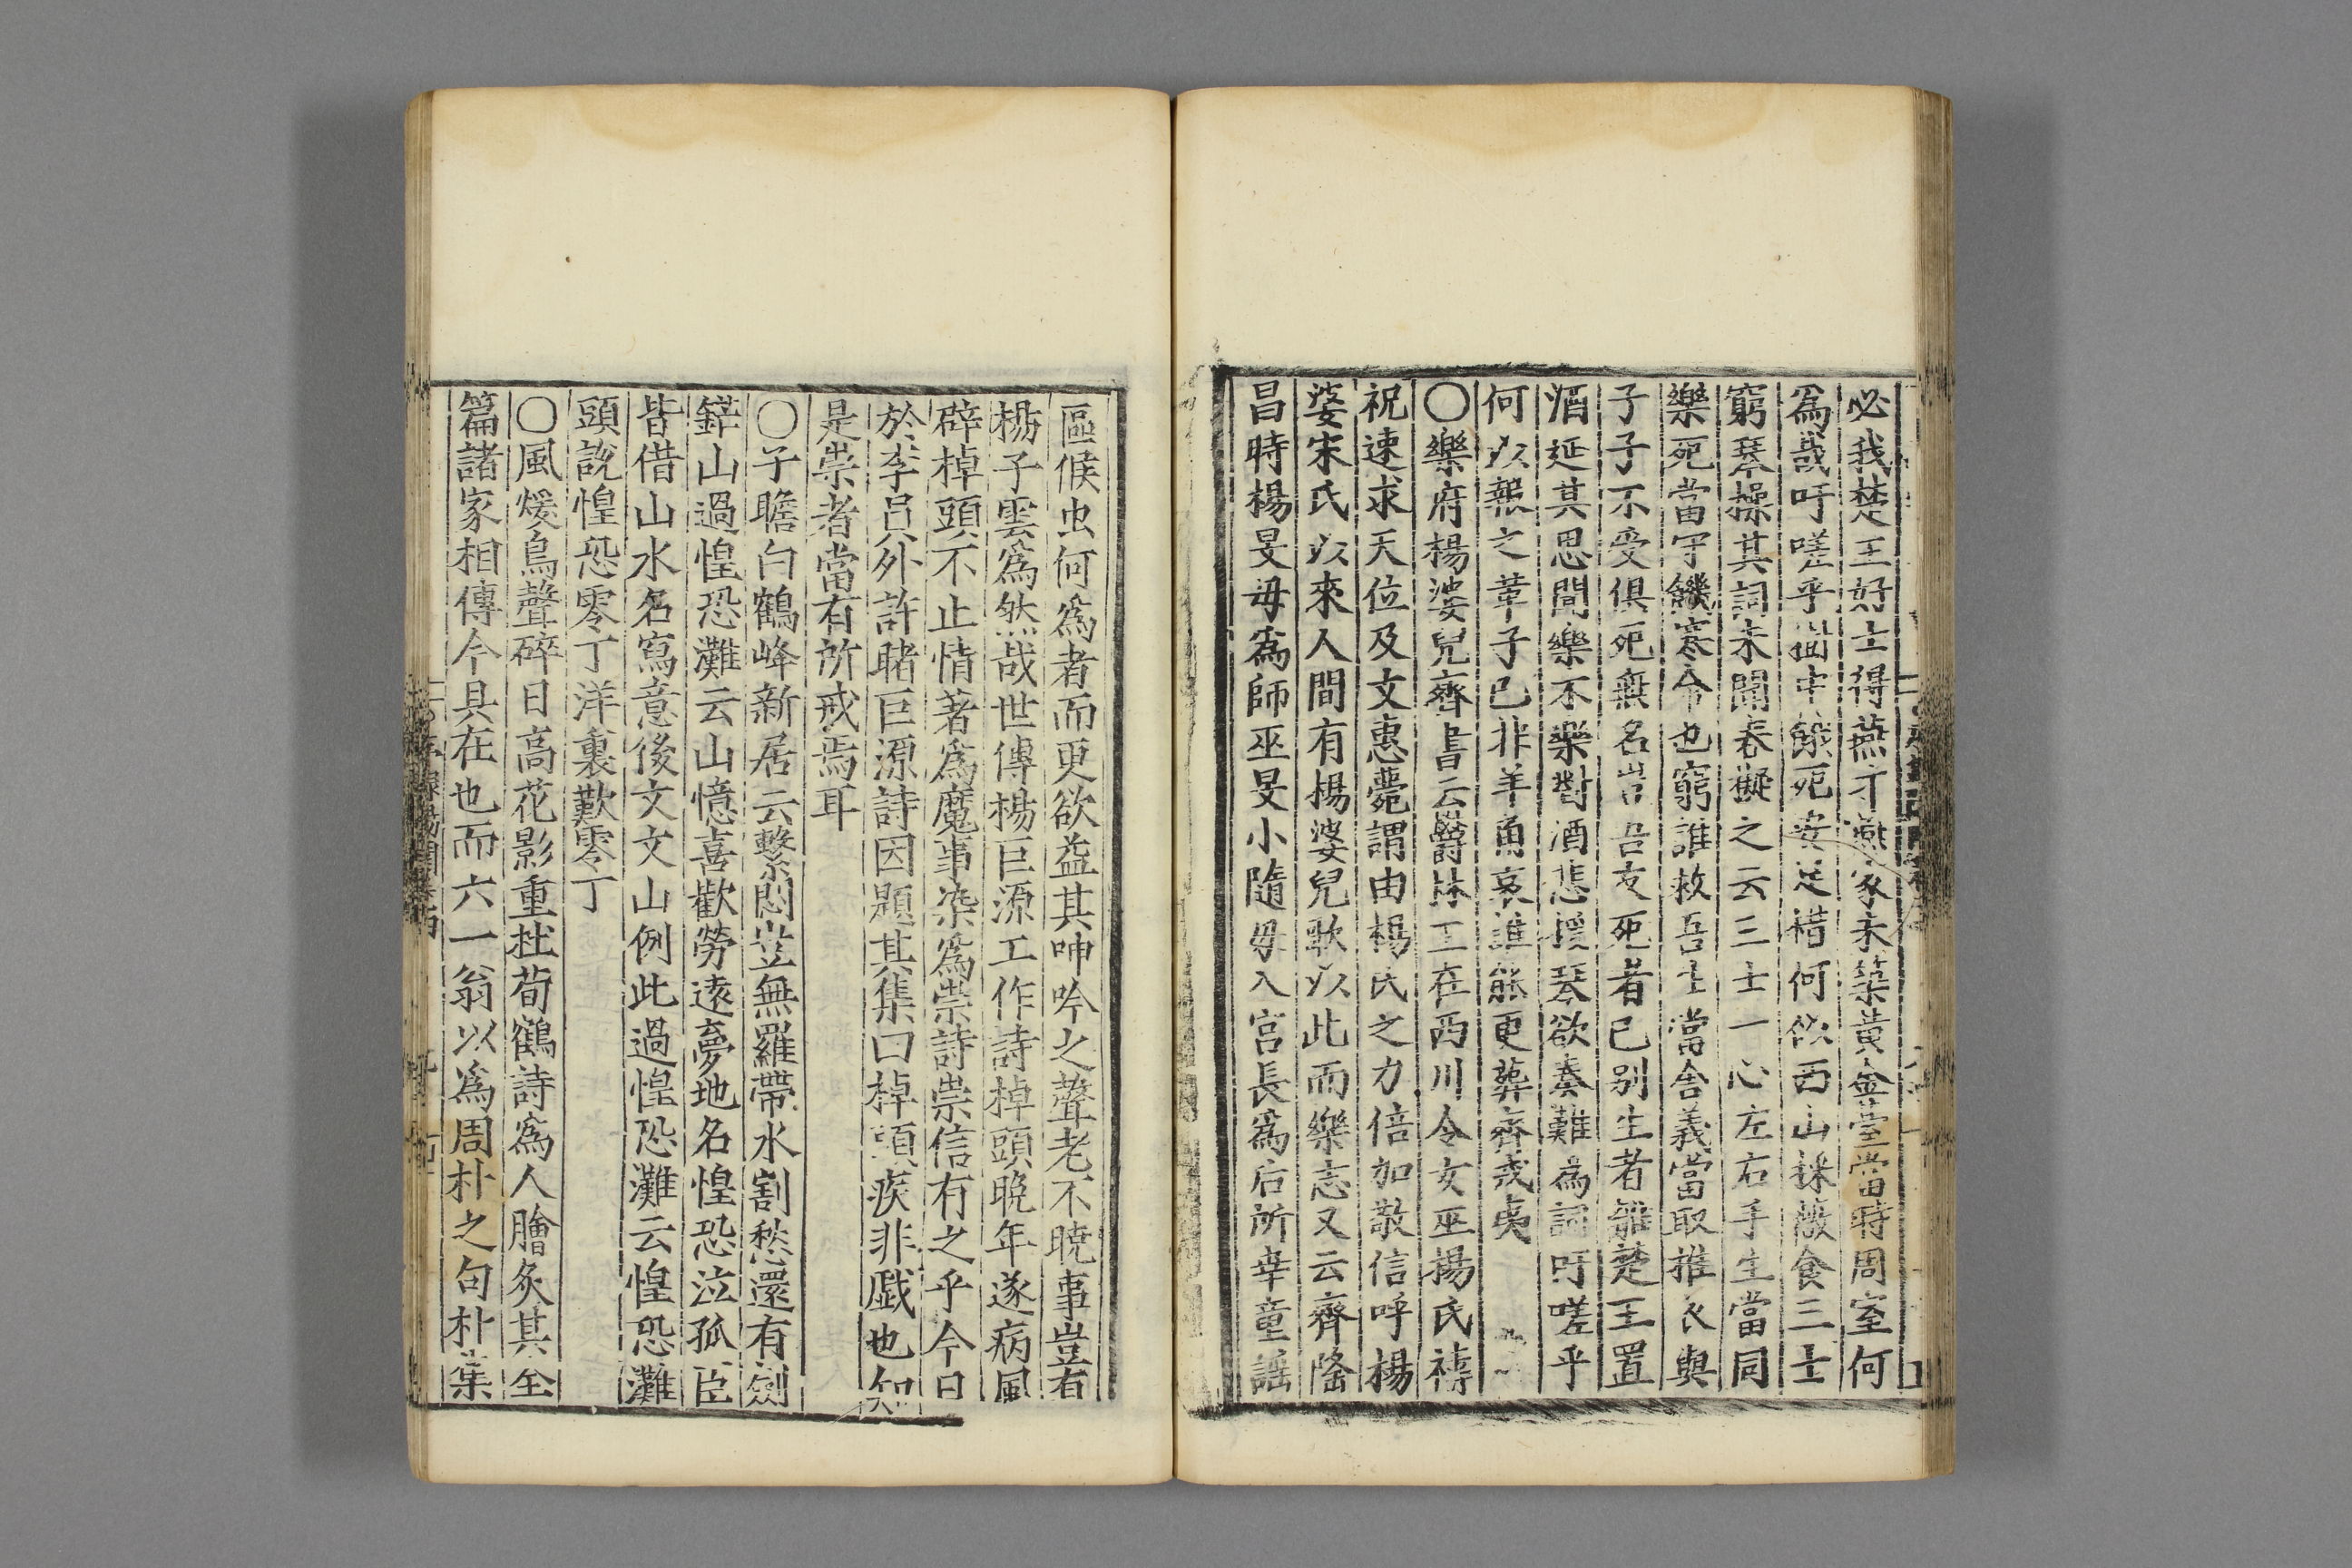 必我楚王好士得燕才燕家未築黃金臺當時周室何
爲哉吁嗟乎囬中餓死安足惜何似西山採薇食三士
窮琴操其詞未聞春擬之云三士一心左右手生當同
樂死當守饑寒命也窮誰救吾士當舍義當取推衣與
子子不受俱死無名豈吾友死者已別生者雖楚王置
酒延其思聞樂不樂對酒悲援琴欲奏難為詞吁嗟乎
何以報之革子已非羊角哀誰能更葬齊戎夷
○樂府楊婆兒齊書云欝林王在西川令女巫楊氏禱
祝速求天位及文惠薨謂由楊氏之力倍加敬信呼楊
婆宋氏以來人間有楊婆兒歌以此而樂志又云齊隆
昌時楊旻毋爲師巫旻小隨毋入宮長爲后所幸童謡
區候虫何爲者而更欲益其呻吟之聲老不曉事豈有
楊子雲爲然哉世傳楊巨源工作詩掉頭晚年遂病風
辟掉頭不止情著爲魔事染爲崇詩祟信有之乎今日
於李呂外許睹巨源詩因題其集曰掉頭疾非戲也知
是祟者當有所戒焉耳
○子瞻白鶴峰新居云繫悶豈無羅帶水割愁還有劍
鋩山過惶恐灘云山憶喜歡勞遠夢地名惶恐泣孤臣
皆借山水名寫意後文文山例此過惶恐灘云惶恐灘
頭說惶恐零丁洋裏歎零丁
○風煖鳥聲碎日高花影重杜荀鶴詩爲人膾炙其全
篇諸家相傳今具在也而六一翁以爲周朴之句朴集